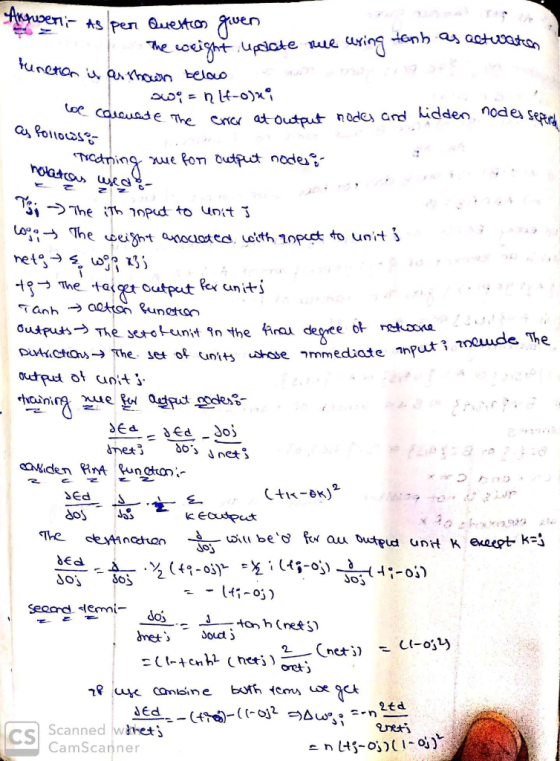 Answer:- As per Question given
The weight update rule using tanh as activation
function is as shown below
Δwi = n(t-o)xi
we calculate The error at output nodes and hidden nodes
as follows:-
Training rule for output nodes:-
notations used:-
→ The ith input to unit J
wji → The weight associated with input to unit j
netj → Σi wji xji
tj → The target output for unit j
Tanh → action function
outputs → The set of unit in the final degree of network
→ The set of units whose immediate input i include The
output of unit j.
training rule for output nodes:-
∂Ed/∂netj = ∂Ed/∂oj - ∂oj/∂netj
consider first function:-
∂Ed/∂oj = ∂/∂oj · 1/2 Σ k∈output (tk-ok)²
The destination ∂/∂oj will be '0' for all output unit k except k=j
∂Ed/∂oj = ∂/∂oj · 1/2 (tj-oj)² = 1/2 : (tj-oj) ∂/∂oj (tj-oj)
= -(tj-oj)
second term:-
∂oj/∂netj = ∂/∂outj tanh(netj)
= (1-tanh²(netj) 2/onetj (netj) = (1-oj²)
If use combine both terms we get
∂Ed/∂netj = -(tj-oj)-(1-oj² ⇒ Δwji = -n 2Ed/2netj
= n(tj-oj)(1-oj)²
CS Scanned with
CamScanner